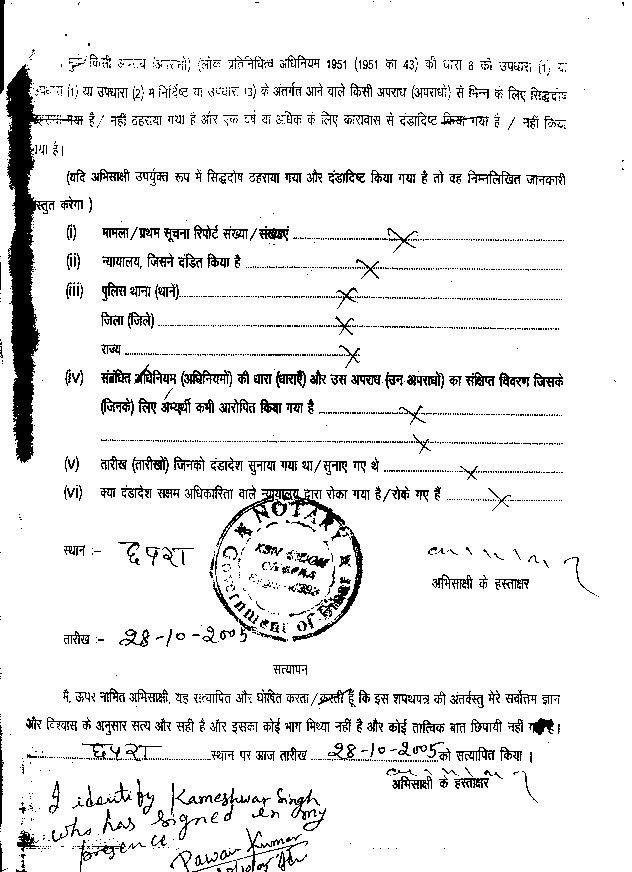 किसी अपराध (अपराधों) (लोक प्रतिनिधित्व अधिनियम 1951 (1951 का 43) की धारा 8 की उपधारा (1) या
उपधारा (1) या उपधारा (2) में निर्दिष्ट या उपधारा (3) के अंतर्गत आने वाले किसी अपराध (अपराधों) से भिन्न के लिए सिद्धदोष
ठहराया गया है / नहीं ठहराया गया है और एक वर्ष या अधिक के लिए कारावास से दंडादिष्ट किया गया है / नहीं किया
गया है।
(यदि अभिसाक्षी उपर्युक्त रूप में सिद्धदोष ठहराया गया और दंडादिष्ट किया गया है तो वह निम्नलिखित जानकारी
स्तुत करेगा )
(i) मामला/प्रथम सूचना रिपोर्ट संख्या/संख्याएं
(ii) न्यायालय, जिसने दंडित किया है
(iii) पुलिस थाना (थाने)
जिला (जिले)
राज्य
(iv) संबंधित अधिनियम (अधिनियमों) की धारा (धाराएँ) और उस अपराध (उन अपराधों) का संक्षिप्त विवरण जिसके
(जिनके) लिए अभ्यर्थी कभी आरोपित किया गया है
(v) तारीख (तारीखों) जिनको दंडादेश सुनाया गया था/सुनाए गए थे
(vi) क्या दंडादेश सक्षम अधिकारिता वाले न्यायालय द्वारा रोका गया है/रोके गए हैं
NOTARY
Government of Bihar
स्थान :- छपरा
अभिसाक्षी के हस्ताक्षर
तारीख :- 28-10-2005
सत्यापन
मैं, ऊपर नामित अभिसाक्षी, यह सत्यापित और घोषित करता/करती हूँ कि इस शपथपत्र की अंतर्वस्तु मेरे सर्वोत्तम ज्ञान
और विश्वास के अनुसार सत्य और सही है और इसका कोई भाग मिथ्या नहीं है और कोई तात्विक बात छिपायी नहीं गई है।
छपरा स्थान पर आज तारीख 28-10-2005 को सत्यापित किया ।
अभिसाक्षी के हस्ताक्षर
I identify Kameshwar Singh
who has signed in my
presence
Pawan Kumar